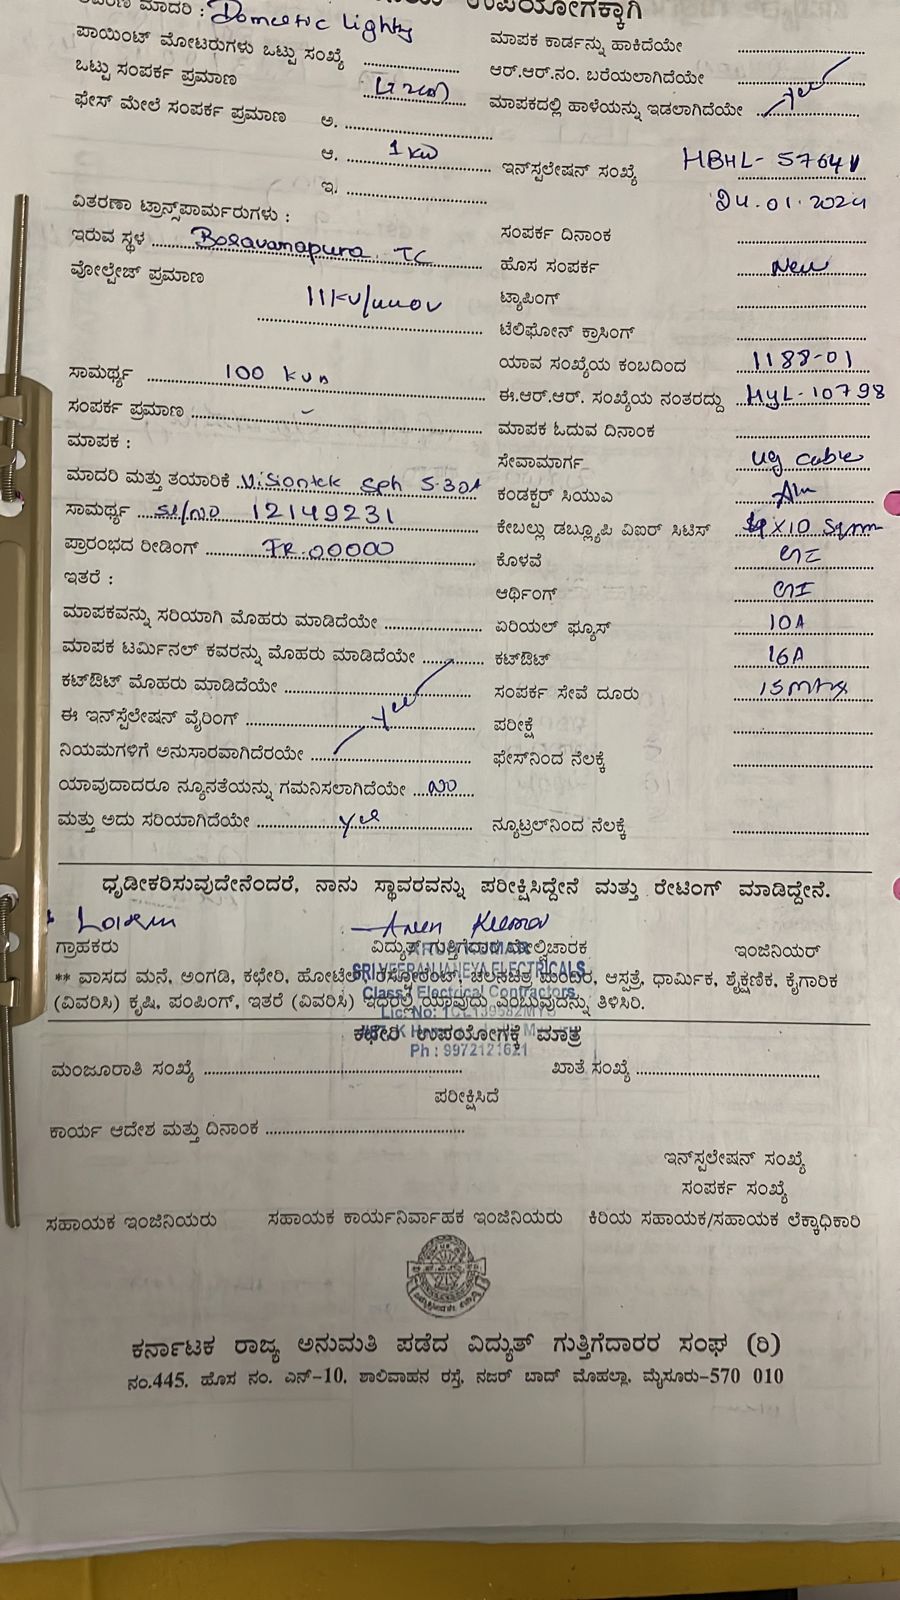 ಮಾದರಿ : Domestic Lighty
ಉಪಯೋಗಕ್ಕಾಗಿ
ಪಾಯಿಂಟ್ ಮೋಟರುಗಳು ಒಟ್ಟು ಸಂಖ್ಯೆ
ಮಾಪಕ ಕಾರ್ಡನ್ನು ಹಾಕಿದೆಯೇ
ಒಟ್ಟು ಸಂಪರ್ಕ ಪ್ರಮಾಣ
ಆರ್.ಆರ್.ನಂ. ಬರೆಯಲಾಗಿದೆಯೇ
ಫೇಸ್ ಮೇಲೆ ಸಂಪರ್ಕ ಪ್ರಮಾಣ ಅ.
ಮಾಪಕದಲ್ಲಿ ಹಾಳೆಯನ್ನು ಇಡಲಾಗಿದೆಯೇ yes
ಆ. 1 KW
ಇನ್‌ಸ್ಪಲೇಷನ್ ಸಂಖ್ಯೆ HBHL- 57641
ಇ.
24.01.2024
ವಿತರಣಾ ಟ್ರಾನ್ಸ್‌ಪಾರ್ಮರುಗಳು :
ಸಂಪರ್ಕ ದಿನಾಂಕ
ಇರುವ ಸ್ಥಳ Basavanapura TC
ಹೊಸ ಸಂಪರ್ಕ New
ವೋಲ್ಟೇಜ್ ಪ್ರಮಾಣ 11KV/440V
ಟ್ಯಾಪಿಂಗ್
ಟೆಲಿಫೋನ್ ಕ್ರಾಸಿಂಗ್
ಯಾವ ಸಂಖ್ಯೆಯ ಕಂಬದಿಂದ 1188-01
ಸಾಮರ್ಥ್ಯ 100 KVA
ಈ.ಆರ್.ಆರ್. ಸಂಖ್ಯೆಯ ನಂತರದ್ದು HYL-10798
ಸಂಪರ್ಕ ಪ್ರಮಾಣ -
ಮಾಪಕ ಓದುವ ದಿನಾಂಕ
ಮಾಪಕ :
ಸೇವಾಮಾರ್ಗ ug cable
ಮಾದರಿ ಮತ್ತು ತಯಾರಿಕೆ Visiontek Sph 5-30A
ಕಂಡಕ್ಟರ್ ಸಿಯುಎ Alu
ಸಾಮರ್ಥ್ಯ Sl/no 12149231
ಕೇಬಲ್ಲು ಡಬ್ಲ್ಯೂಪಿ ಎಐರ್ ಸಿಟಿಸ್ ×10 Sqmm
ಪ್ರಾರಂಭದ ರೀಡಿಂಗ್ FR.00000
ಕೊಳವೆ GI
ಇತರೆ :
ಆರ್ಥಿಂಗ್ GI
ಮಾಪಕವನ್ನು ಸರಿಯಾಗಿ ಮೊಹರು ಮಾಡಿದೆಯೇ
ಏರಿಯಲ್ ಫ್ಯೂಸ್ 10A
ಮಾಪಕ ಟರ್ಮಿನಲ್ ಕವರನ್ನು ಮೊಹರು ಮಾಡಿದೆಯೇ
ಕಟ್‌ಔಟ್ 16A
ಕಟ್‌ಔಟ್ ಮೊಹರು ಮಾಡಿದೆಯೇ
ಸಂಪರ್ಕ ಸೇವೆ ದೂರು 15 mtrs
ಈ ಇನ್‌ಸ್ಪೆಲೇಷನ್ ವೈರಿಂಗ್ yes
ಪರೀಕ್ಷೆ
ನಿಯಮಗಳಿಗೆ ಅನುಸಾರವಾಗಿದೆರಯೇ
ಫೇಸ್‌ನಿಂದ ನೆಲಕ್ಕೆ
ಯಾವುದಾದರೂ ನ್ಯೂನತೆಯನ್ನು ಗಮನಿಸಲಾಗಿದೆಯೇ no
ಮತ್ತು ಅದು ಸರಿಯಾಗಿದೆಯೇ yes
ನ್ಯೂಟ್ರಲ್‌ನಿಂದ ನೆಲಕ್ಕೆ
ಧೃಡೀಕರಿಸುವುದೇನೆಂದರೆ, ನಾನು ಸ್ಥಾವರವನ್ನು ಪರೀಕ್ಷಿಸಿದ್ದೇನೆ ಮತ್ತು ರೇಟಿಂಗ್ ಮಾಡಿದ್ದೇನೆ.
Arun Kumar
ಗ್ರಾಹಕರು ವಿದ್ಯುತ್ ಗುತ್ತಿಗೆದಾರ ಮೇಲ್ವಿಚಾರಕ ಇಂಜಿನಿಯರ್
ARUN KUMAR
SRI VEERANJANEYA ELECTRICALS
** ವಾಸದ ಮನೆ, ಅಂಗಡಿ, ಕಛೇರಿ, ಹೋಟೆಲ್, ರೆಸ್ಟೋರೆಂಟ್, ಚಲನಚಿತ್ರ ಮಂದಿರ, ಆಸ್ಪತ್ರೆ, ಧಾರ್ಮಿಕ, ಶೈಕ್ಷಣಿಕ, ಕೈಗಾರಿಕ
Class-I Electrical Contractors
(ವಿವರಿಸಿ) ಕೃಷಿ, ಪಂಪಿಂಗ್, ಇತರೆ (ವಿವರಿಸಿ) ಇಧರಲ್ಲಿ ಯಾವುದು ಎಂಬುವುದನ್ನು ತಿಳಿಸಿರಿ.
Lic. No:
ಕಛೇರಿ ಉಪಯೋಗಕ್ಕೆ ಮಾತ್ರ
Ph : 9972121621
ಮಂಜೂರಾತಿ ಸಂಖ್ಯೆ ಖಾತೆ ಸಂಖ್ಯೆ
ಪರೀಕ್ಷಿಸಿದೆ
ಕಾರ್ಯ ಆದೇಶ ಮತ್ತು ದಿನಾಂಕ
ಇನ್‌ಸ್ಪಲೇಷನ್ ಸಂಖ್ಯೆ
ಸಂಪರ್ಕ ಸಂಖ್ಯೆ
ಸಹಾಯಕ ಇಂಜಿನಿಯರು ಸಹಾಯಕ ಕಾರ್ಯನಿರ್ವಾಹಕ ಇಂಜಿನಿಯರು ಕಿರಿಯ ಸಹಾಯಕ/ಸಹಾಯಕ ಲೆಕ್ಕಾಧಿಕಾರಿ
ಕರ್ನಾಟಕ ರಾಜ್ಯ ಅನುಮತಿ ಪಡೆದ ವಿದ್ಯುತ್ ಗುತ್ತಿಗೆದಾರರ ಸಂಘ (ರಿ)
ನಂ.445, ಹೊಸ ನಂ. ಎನ್-10, ಶಾಲಿವಾಹನ ರಸ್ತೆ, ನಜರ್ ಬಾದ್ ಮೊಹಲ್ಲಾ, ಮೈಸೂರು-570 010